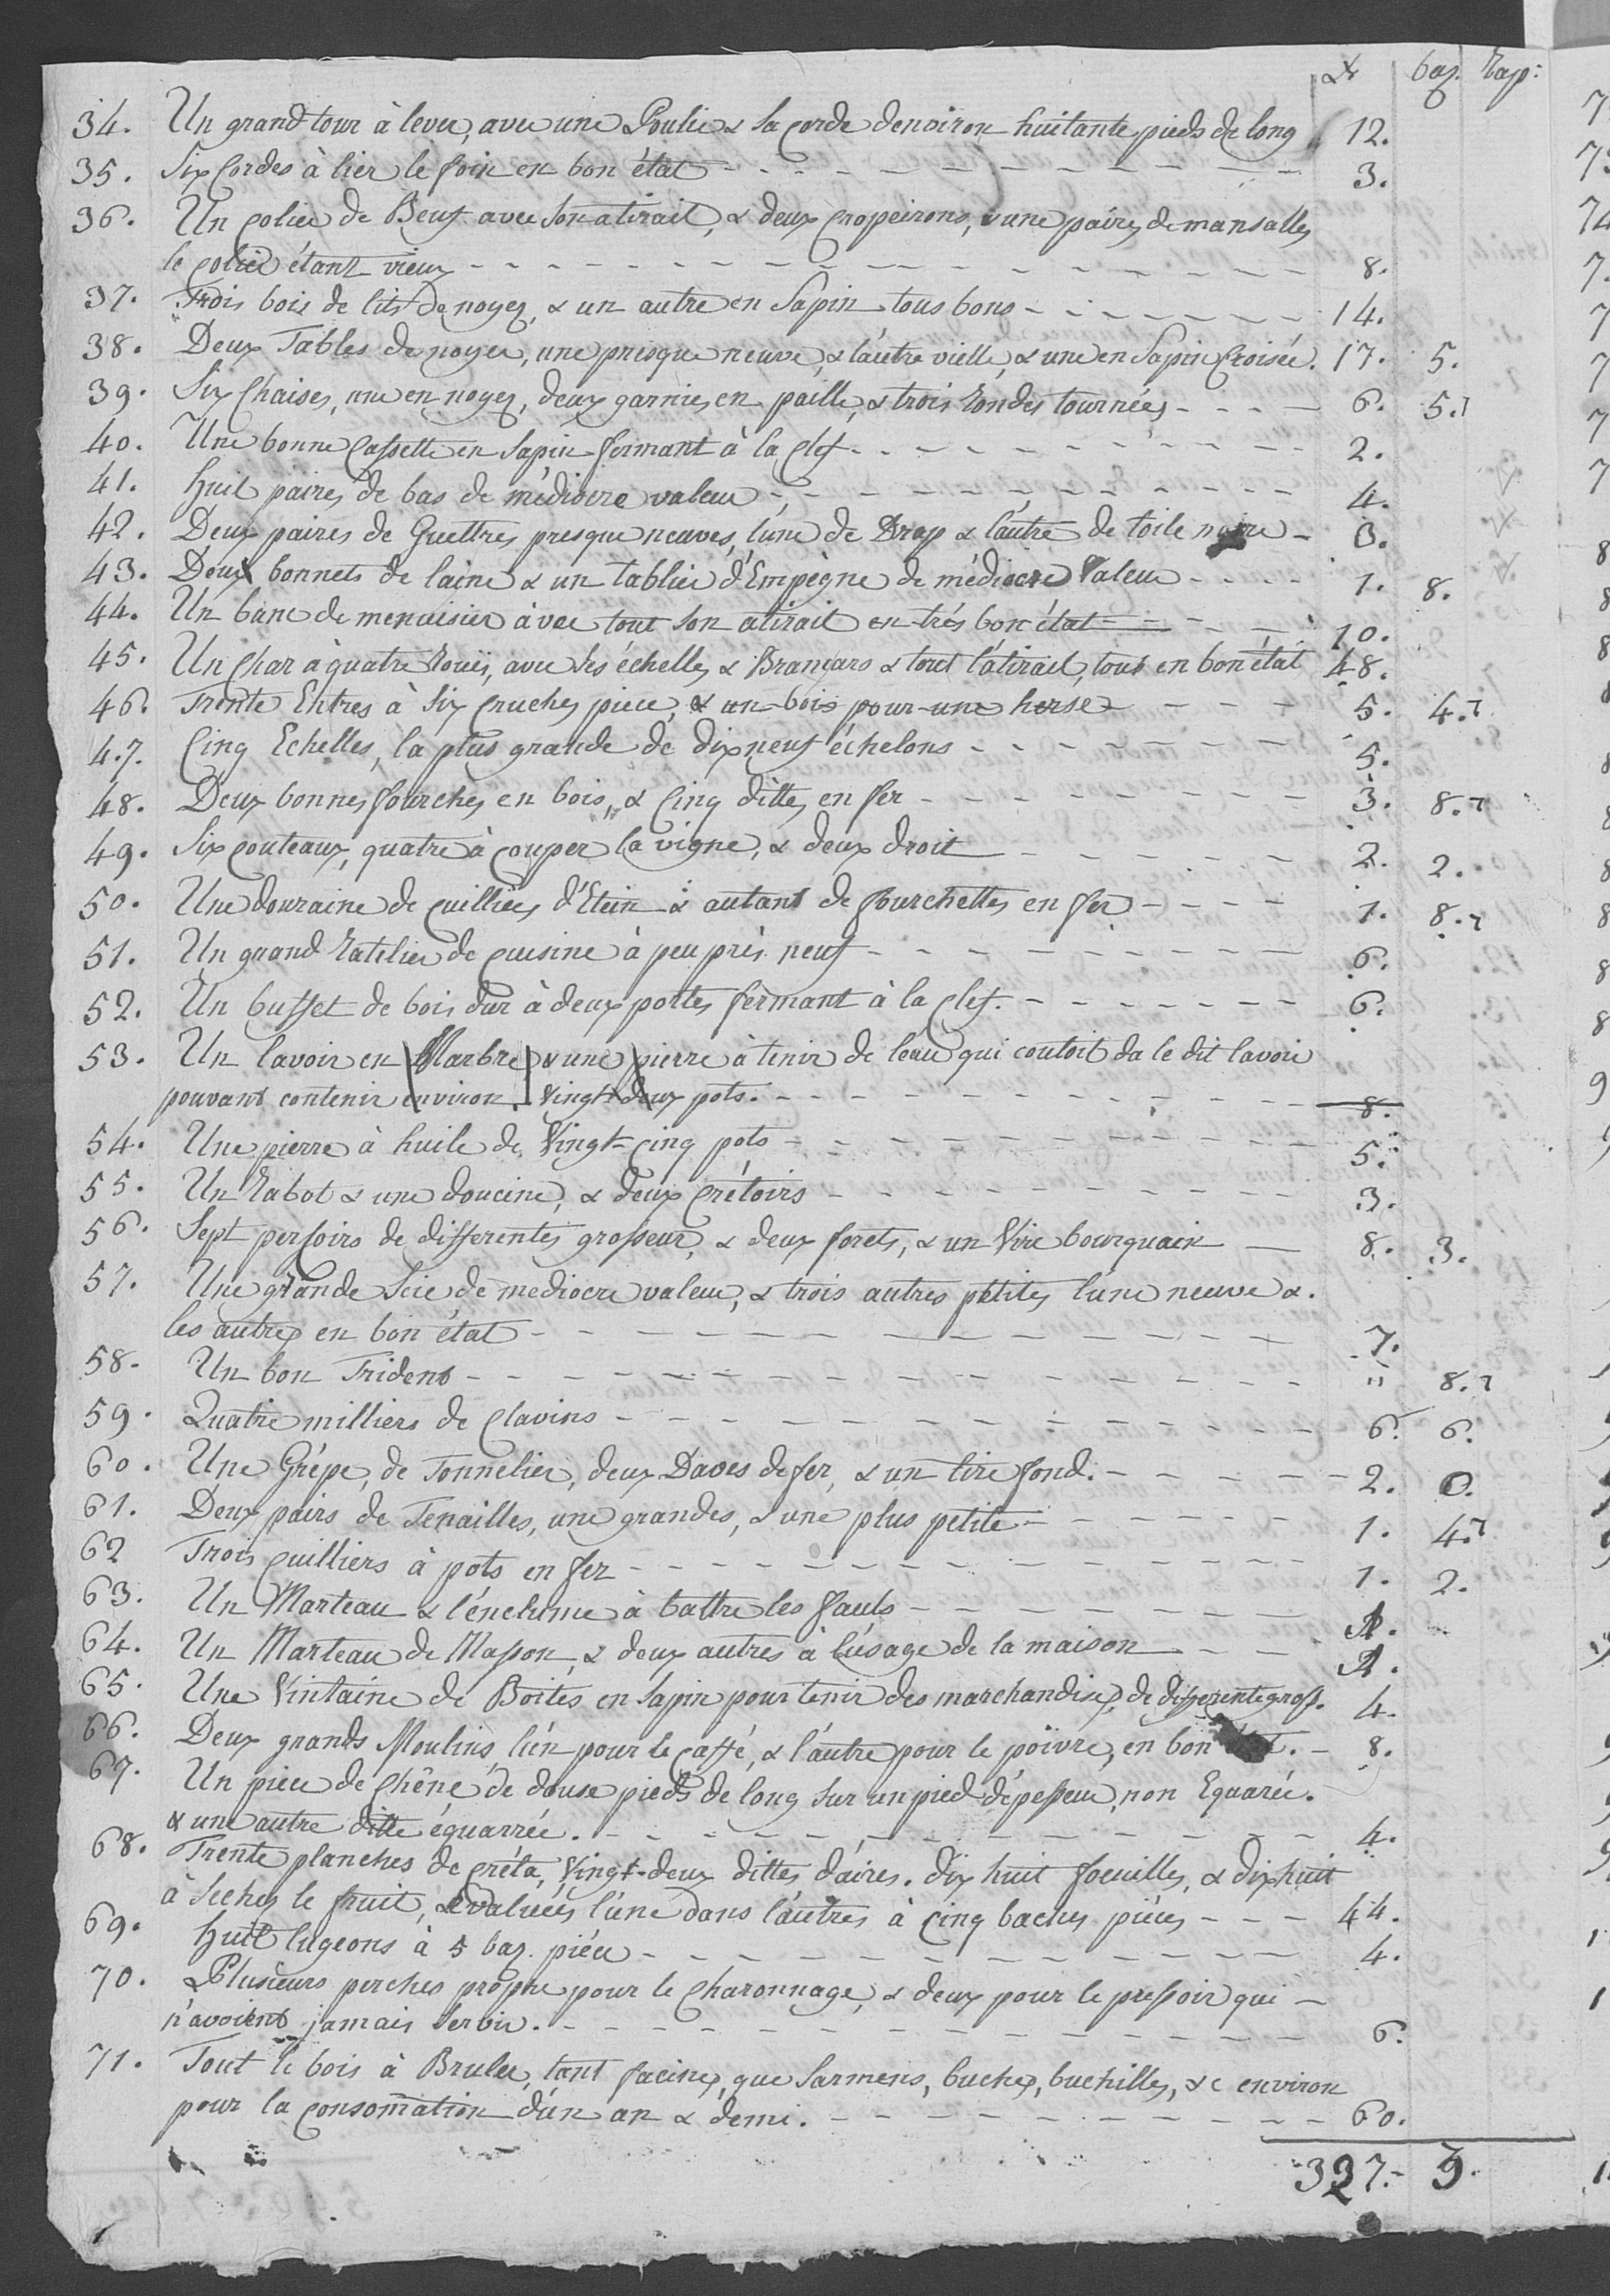 baz. Rap:
34. Un grand tour à lever, avec une Poulie & sa corde denviron huitante pieds de long 12.
35. Six Cordes à lier le foin en bon état - - - 3.
36. Un colier de Beuf avec son atirail, & deux cropeirons, & une paires de mansalles
le colier étant vieux - - - 8.
37. Trois bois de lits de noyer, & un autre en Sapin tous bons - - - 14.
38. Deux Tables de noyer, une presque neuve, & l'autre vielle, & une en Sapin Croisée. 17. 5.
39. Six Chaises, une en noyer, deux garnies en paille, & trois rondes tournées - - - 6. 5.
40. Une bonne Cassette en Sapin fermant à la Clef - - - 2.
41. Huit paires de bas de médiocre valeur - - - 4.
42. Deux paires de Guettres presque neuves, l'une de Drap & l'autre de toile noire - 3.
43. Deux bonnets de laine & un tablier d'Empègne de médiocre Valeur - - - 1. 8.
44. Un banc de menuisier avec tout son atirail en trés bon état - - - 10.
45. Un Char à quatre Rouës, avec ses échelles & Brancars & tout l'atirail, tout en bon état 48.
46. Trente Entres à Six Cruches piece, & un bois pour une herse - - - 5. 4.
47. Cinq Echelles, la plus grande de dix neuf échelons - - - 5.
48. Deux bonnes fourches en bois, & Cinq dittes en fer - - - 3. 8.
49. Six couteaux, quatre à couper la vigne, & deux droit - - - 2. 2.
50. Une douzaine de cuilliers d'Etein & autant de fourchettes en fer - - - 1. 8.
51. Un grand Ratelier de cuisine à peu près neuf - - - 6.
52. Un buffet de bois dur à deux portes fermant à la Clef. - - - 6.
53. Un lavoir en Marbre & une pierre à tenir de l'eau qui coutoit da le dit lavoir
pouvant contenir environ Vingt deux pots. - - - 8.
54. Une pierre à huile de Vingt-Cinq pots - - - 5.
55. Un Rabot & une doucine, & deux Crétoirs - - - 3.
56. Sept persoirs de differentes grosseur, & deux forets, & un Vire bourquain - 8. 3.
57. Une grande Scie de mediocre valeur, & trois autres petites l'une neuve &.
les autres en bon état - - - 7.
58. Un bon Trident - - - " 8.
59. Quatre milliers de Clavins - - - 6. 6.
60. Une Grépe, de Tonnelier, deux Daves de fer, & un tire fond. - - - 2. 0.
61. Deux pairs de Tenailles, une grandes, & une plus petite - - - 1. 4.
62 Trois cuilliers à pots en fer - - - 1. 2.
63. Un Marteau & l'énclume à battre les faulx - - -
64. Un Marteau de Masson, & deux autres à l'usage de la maison - - -
65. Une Vintaine de Boites en Sapin pour tenir des marchandises, de differente gross. 4.
66. Deux grands Moulins l'un pour le caffé, & l'autre pour le poivre, en bon état. - 8.
67. Un piece de Chêne de douse pieds de long sur un pied d'épesseur, non Equarée.
& une autre ditte équarrée. - - - 4.
68. Trente planches de créta, Vingt-deux dittes d'aires. dix huit foeuilles, & dix huit
à secher le fruit, evaluées l'une dans l'autres à Cinq baches piéces - - - 44.
69. Huit lugeons à 5 baz. piéce - - - 4.
70. Plusieurs perches propre pour le Charonnage, & deux pour le pressoir qui -
n'avoient jamais servir. - - - 6.
71. Tout le bois à Bruler, tant facines, que Sarmens, buches, buchilles, &c environ
pour la consomation d'un an & demi. - - - 60.
327.